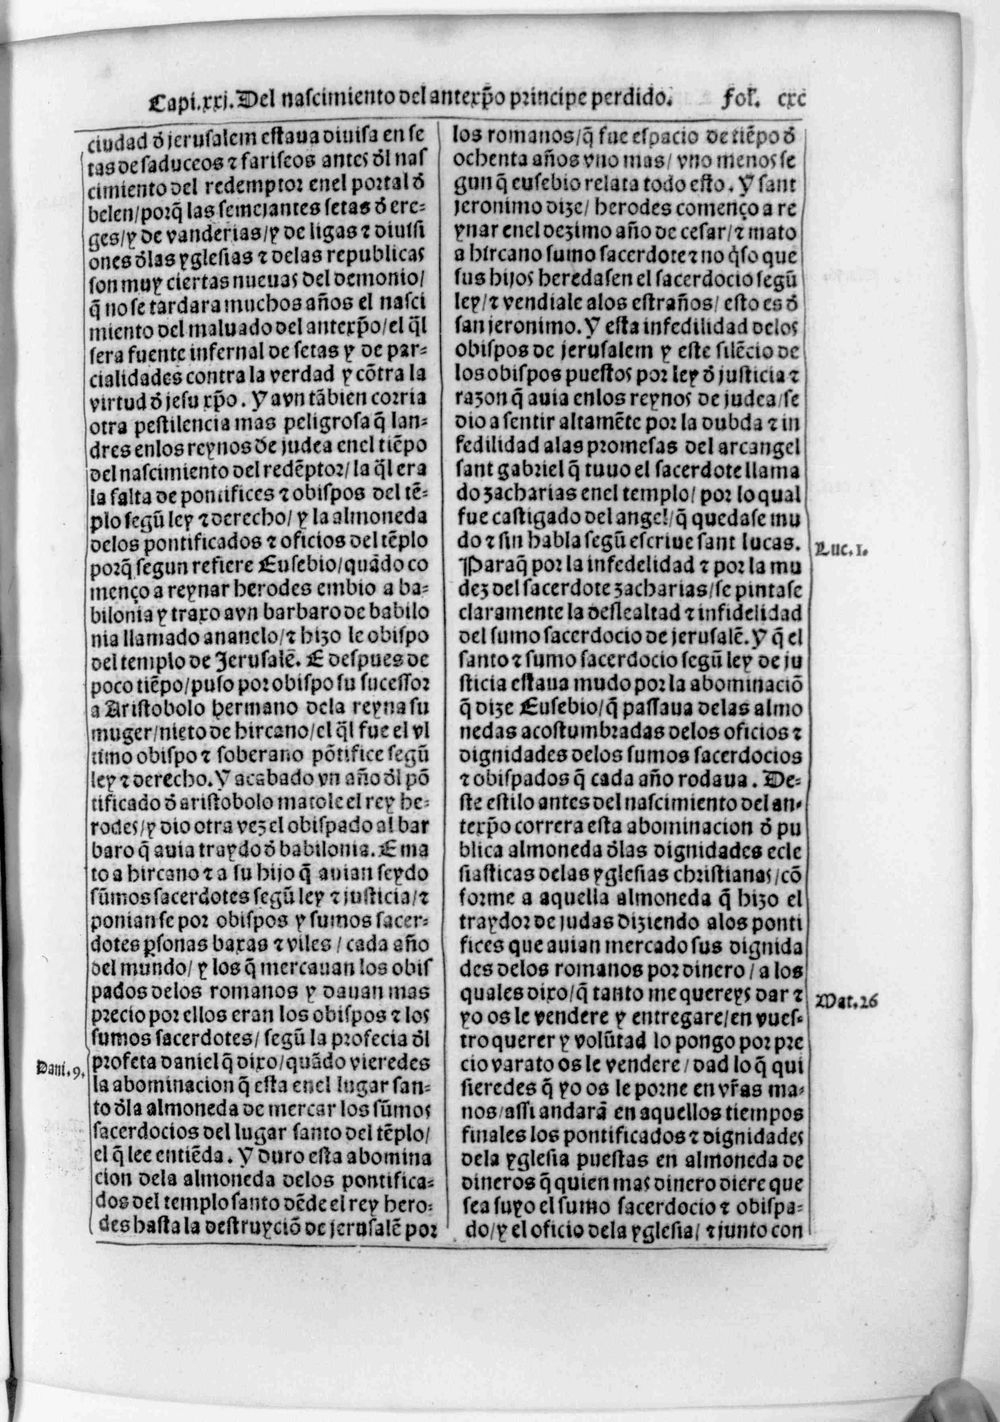 Capi.xxj. Del nascimiento del antexp̃o principe perdido. fol. cxc
ciudad d̃ jerusalem estaua diuisa en se
tas de saduceos ⁊ fariseos antes d̃l nas
cimiento del redemptor enel portal d̃
belen/porq̃ las semejantes setas d̃ ere-
ges/y de vanderias/y de ligas ⁊ diuisi
ones d̃las yglesias ⁊ delas republicas
son muy ciertas nueuas del demonio/
q̃ no se tardara muchos años el nasci
miento del maluado del antexp̃o/el q̃l
sera fuente infernal de setas y de par-
cialidades contra la verdad y cõtra la
virtud d̃ jesu xp̃o. Y avn tãbien corria
otra pestilencia mas peligrosa q̃ lan-
dres enlos reynos de judea enel tiẽpo
del nascimiento del redẽptor/la q̃l era
la falta de pontifices ⁊ obispos del tẽ-
plo segũ ley ⁊ derecho/ y la almoneda
delos pontificados ⁊ oficios del tẽplo
porq̃ segun refiere Eusebio/quãdo co
menço a reynar herodes embio a ba-
bilonia y traxo avn barbaro de babilo
nia llamado ananelo/⁊ hizo le obispo
del templo de Jerusalẽ. E despues de
poco tiẽpo/puso por obispo su sucessor
a Aristobolo hermano dela reyna su
muger/nieto de hircano/el q̃l fue el vl
timo obispo ⁊ soberano põtifice segũ
ley ⁊ derecho. Y acabado vn año d̃l põ
tificado d̃ aristobolo matole el rey he-
rodes/y dio otra vez el obispado al bar
baro q̃ auia traydo d̃ babilonia. E ma
to a hircano ⁊ a su hijo q̃ auian seydo
sũmos sacerdotes segũ ley ⁊ justicia/⁊
ponian se por obispos y sumos sacer-
dotes p̱sonas baxas ⁊ viles/cada año
del mundo/ y los q̃ mercauan los obis
pados delos romanos y dauan mas
precio por ellos eran los obispos ⁊ los
sumos sacerdotes/segũ la profecia d̃l
profeta daniel q̃ dixo/quãdo vieredes
Dani.9.
la abominacion q̃ esta enel lugar san-
to d̃la almoneda de mercar los sũmos
sacerdocios del lugar santo del tẽplo/
el q̃ lee entiẽda. Y duro esta abomina
cion dela almoneda delos pontifica-
dos del templo santo dẽde el rey hero-
des hasta la destruyciõ de jerusalẽ por
los romanos/q̃ fue espacio de tiẽpo d̃
ochenta años vno mas/vno menos se
gun q̃ eusebio relata todo esto. Y sant
jeronimo dize/ herodes començo a re
ynar enel dezimo año de cesar/⁊ mato
a hircano sumo sacerdote ⁊ no q̃so que
sus hijos heredasen el sacerdocio segũ
ley/⁊ vendiale alos estraños/esto es d̃
san jeronimo. Y esta infedilidad delos
obispos de jerusalem y este silẽcio de
los obispos puestos por ley d̃ justicia ⁊
razon q̃ auia enlos reynos de judea/se
dio a sentir altamẽte por la dubda ⁊ in
fedilidad alas promesas del arcangel
sant gabriel q̃ tuuo el sacerdote llama
do zacharias enel templo/por lo qual
fue castigado del angel/q̃ quedase mu
do ⁊ sin habla segũ escriue sant lucas.
Luc.1.
Paraq̃ por la infedelidad ⁊ por la mu
dez del sacerdote zacharias/se pintase
claramente la deslealtad ⁊ infidelidad
del sumo sacerdocio de jerusalẽ. Y q̃ el
santo ⁊ sumo sacerdocio segũ ley de ju
sticia estaua mudo por la abominaciõ
q̃ dize Eusebio/q̃ passaua delas almo
nedas acostumbradas delos oficios ⁊
dignidades delos sumos sacerdocios
⁊ obispados q̃ cada año rodaua. De-
ste estilo antes del nascimiento del an-
texp̃o correra esta abominacion d̃ pu
blica almoneda d̃las dignidades ecle
siasticas delas yglesias christianas/cõ
forme a aquella almoneda q̃ hizo el
traydor de judas diziendo alos ponti
fices que auian mercado sus dignida
des delos romanos por dinero/a los
quales dixo/q̃ tanto me quereys dar ⁊
Mat.26
yo os le vendere y entregare/en vues-
tro querer y volũtad lo pongo por pre
cio varato os le vendere/dad lo q̃ qui
sieredes q̃ yo os le porne en vr̃as ma-
nos/assi andarã en aquellos tiempos
finales los pontificados ⁊ dignidades
dela yglesia puestas en almoneda de
dineros q̃ quien mas dinero diere que
sea suyo el sumo sacerdocio ⁊ obispa-
do/y el oficio dela yglesia/⁊ junto con